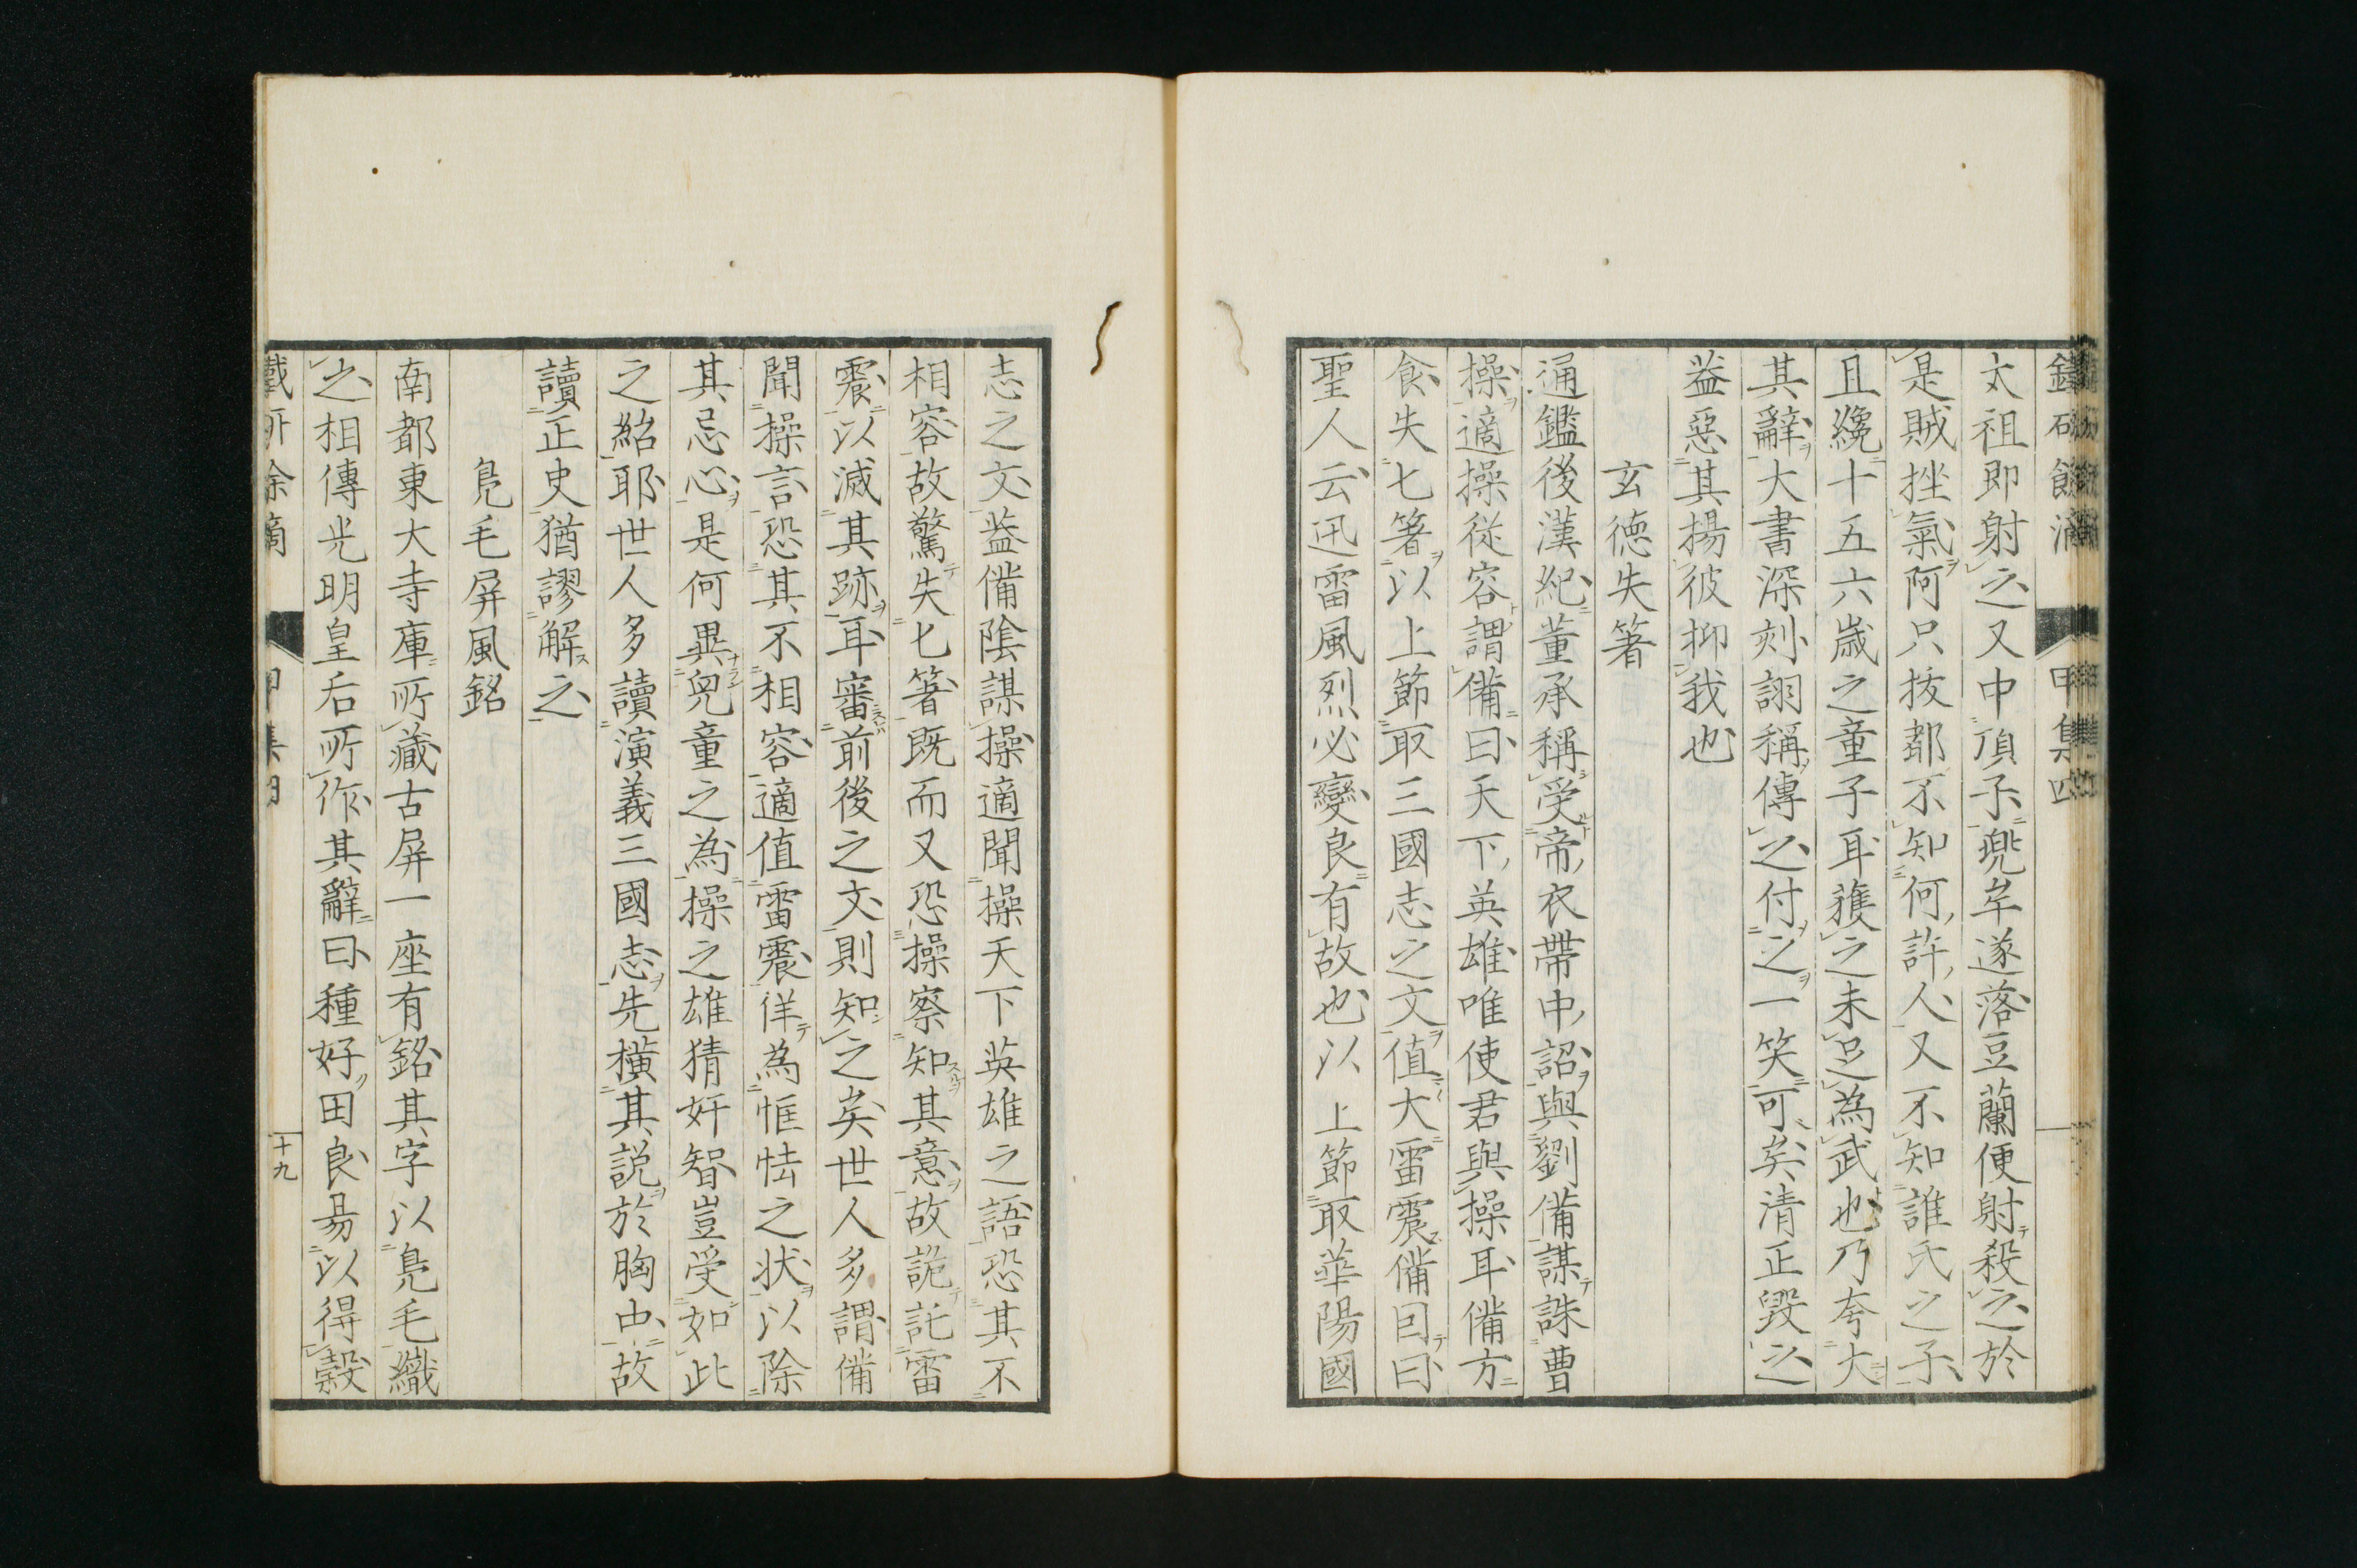 鐵研餘滴 甲集四
太祖即射之又中頂子兜牟遂落豆蘭便射殺之於
是賊挫氣阿只拔都不知何許人又不知誰氏之子
且纔十五六歲之童子耳獲之未足為武也乃夸大
其辭大書深刻詡稱傳之付之一笑可矣清正毀之
益惡其揚彼抑我也
玄德失箸
通鑑後漢紀董承稱受帝衣帶中詔與劉備謀誅曹
操適操從容謂備曰天下英雄唯使君與操耳備方
食失匕箸以上節取三國志之文值大雷震備因曰
聖人云迅雷風烈必變良有故也以上節取華陽國
志之文葢備陰謀操適聞操天下英雄之語恐其不
相容故驚失匕箸既而又恐操察知其意故詭託雷
震以滅其跡耳審前後之文則知之矣世人多謂備
聞操言恐其不相容適值雷震佯為恇怯之狀以除
其忌心是何異兒童之為操之雄猜奸智豈受如此
之紿耶世人多讀演義三國志先橫其說於胸中故
讀正史猶謬解之
鳧毛屏風銘
南都東大寺庫所藏古屏一座有銘其字以鳧毛織
之相傳光明皇后所作其辭曰種好田良易以得穀
鐵研餘滴 甲集四 十九